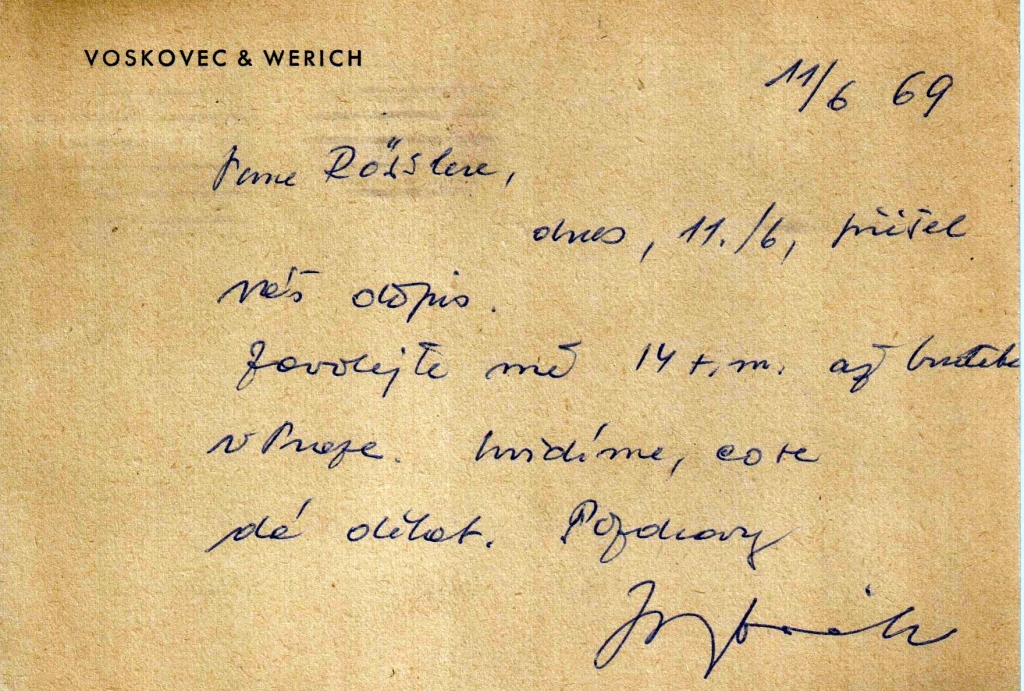 VOSKOVEC & WERICH
11/6 69
Pane Rösslere,
dnes, 11./6, přišel
váš dopis.
Zavolejte mě 14 t.m. až budete
v Praze. Uvidíme, co se
dá dělat. Pozdravy